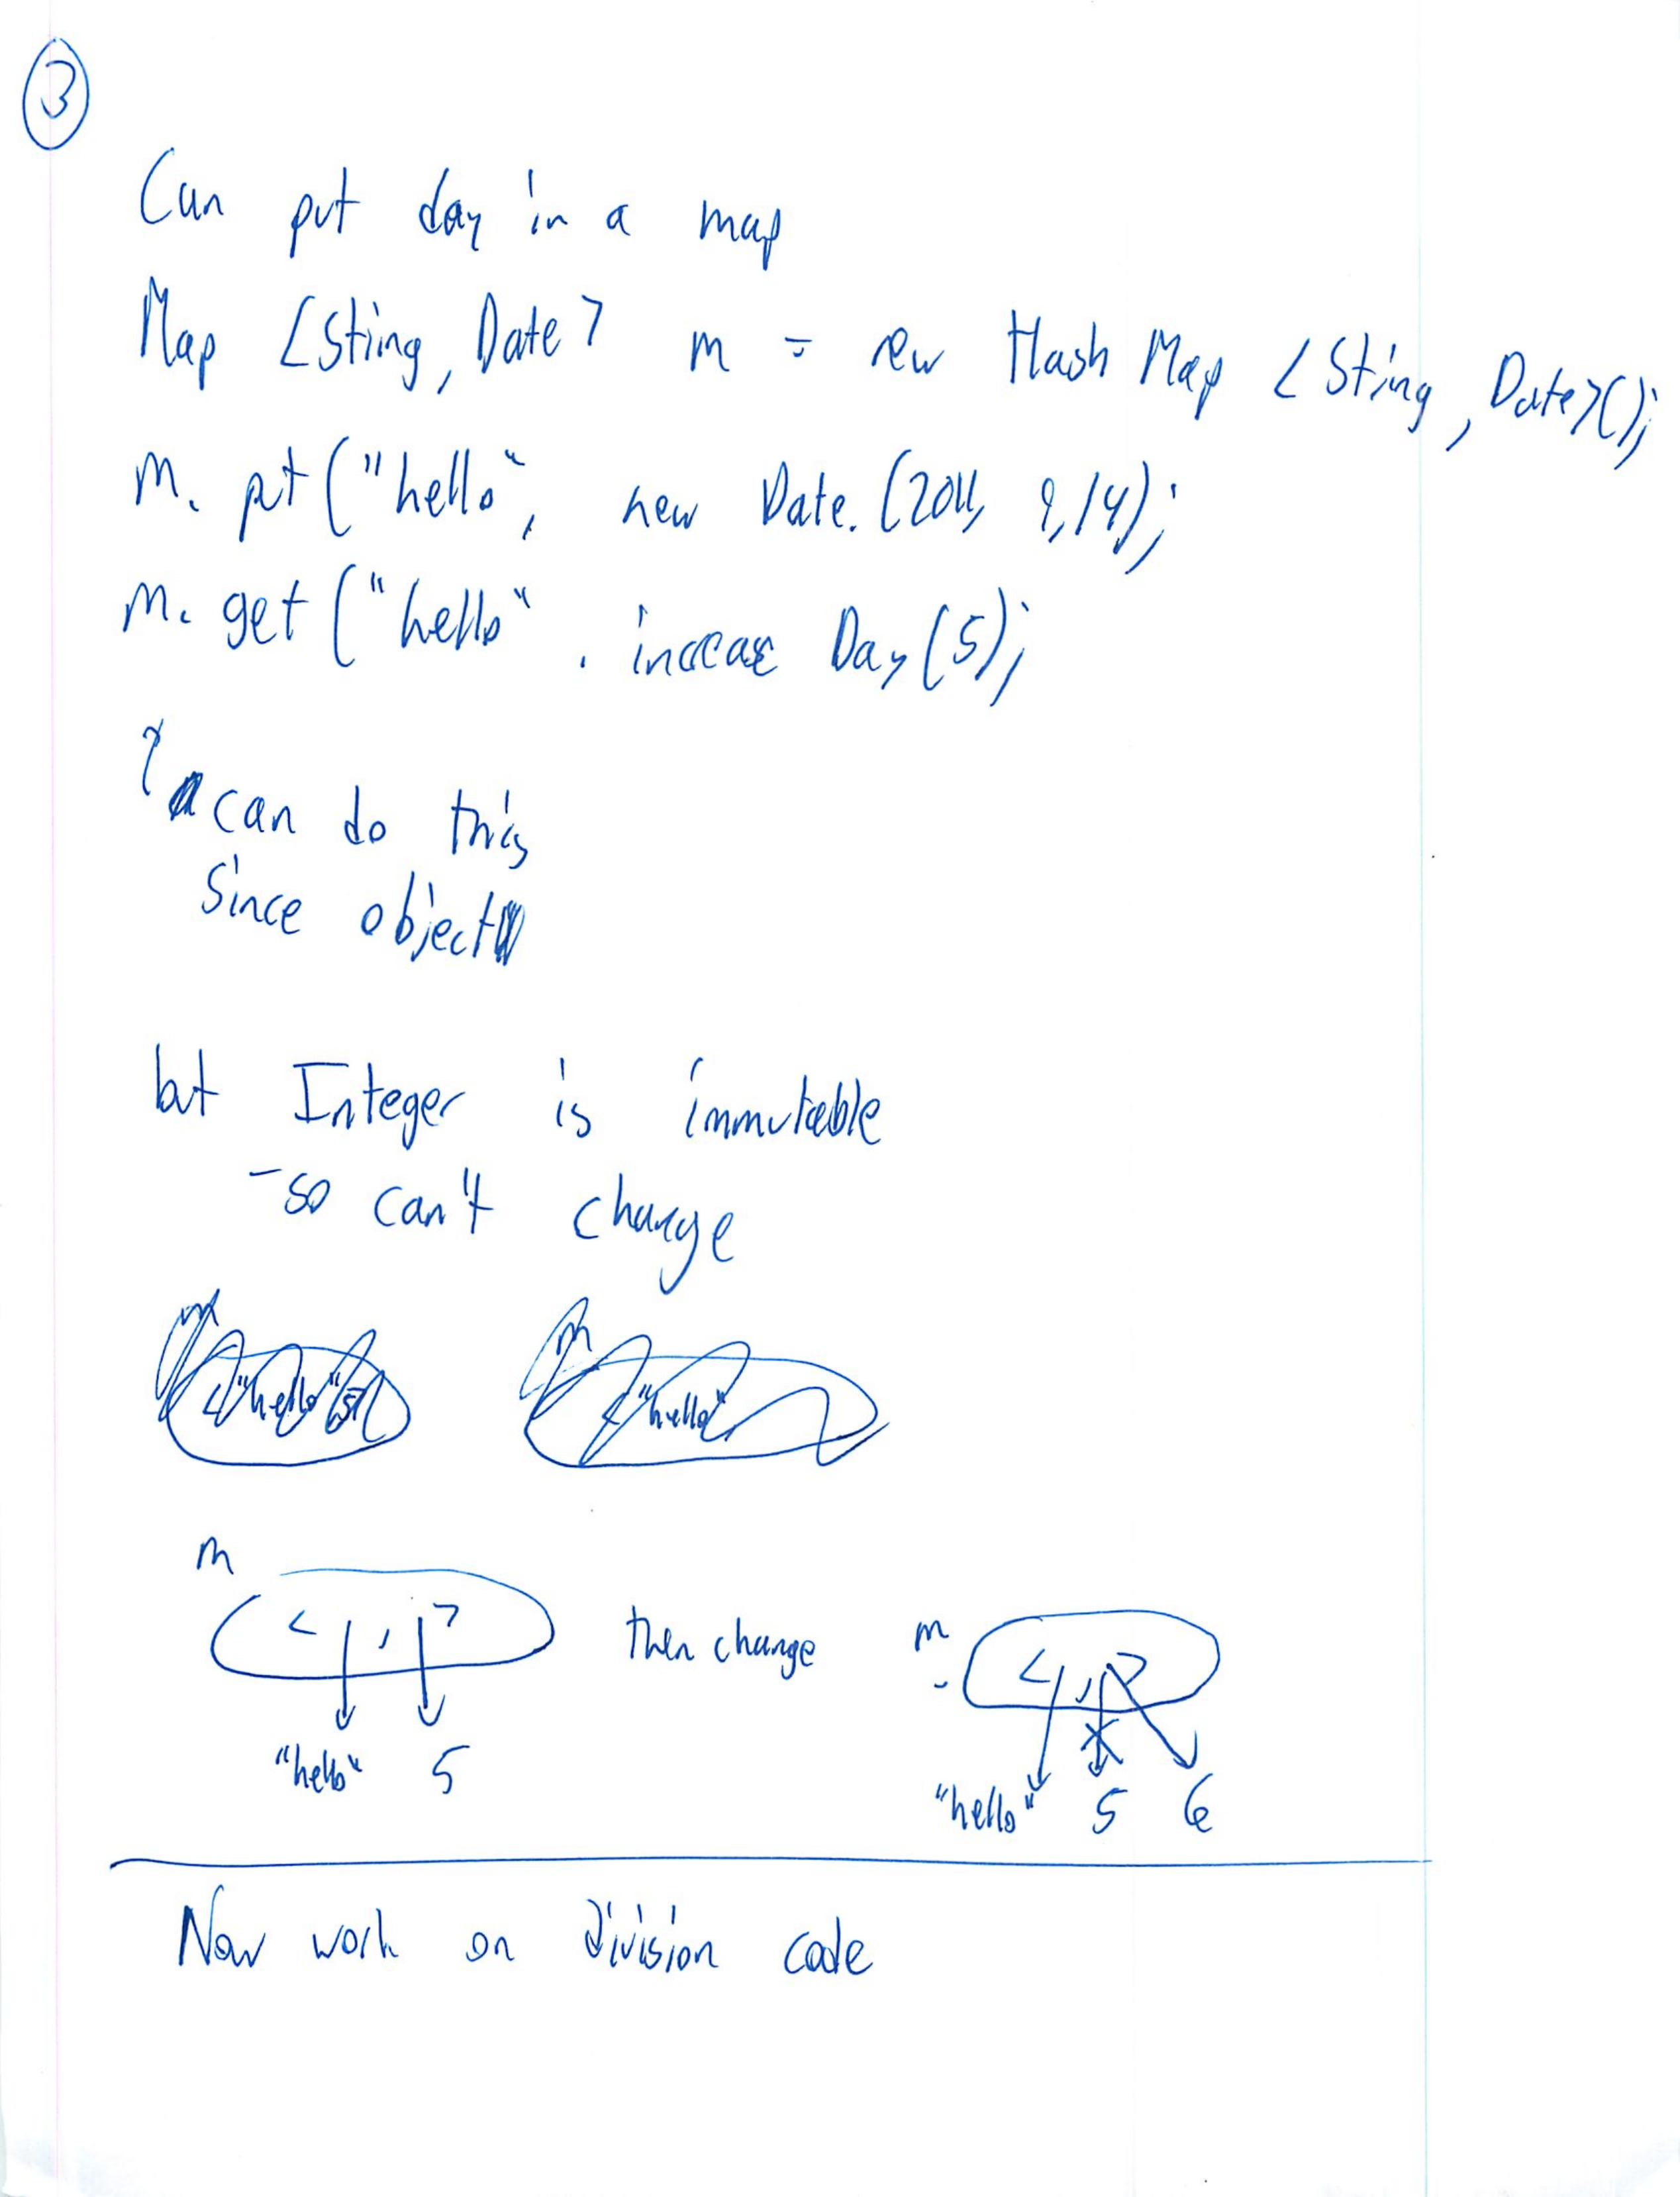 3
Can put day in a map
Map <String, Date> m = new Hash Map <String, Date>();
m. put ("hello", new Date. (2011, 9, 14);
m. get ("hello" . increase Day (5);
↑ can do this
since object
but Integer is immutable
- so can't change
m m
<"hello" 5> <"hello"
m
< , > then change m < , >
"hello" 5 "hello" 5 6
Now work on division code